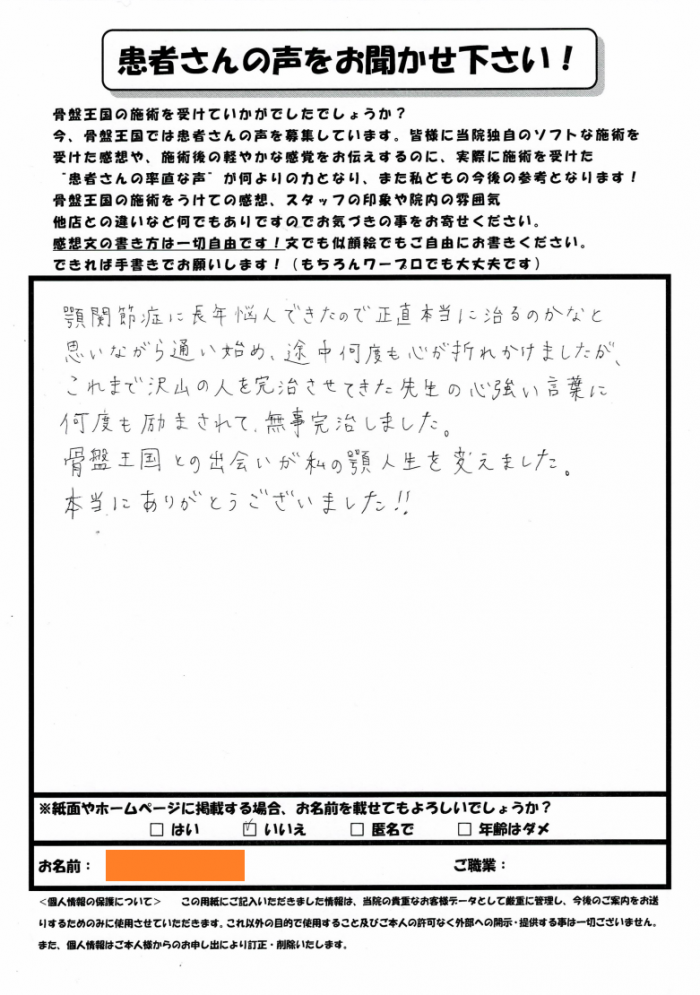 患者さんの声をお聞かせ下さい！
骨盤王国の施術を受けていかがでしたでしょうか？
今、骨盤王国では患者さんの声を募集しています。皆様に当院独自のソフトな施術を
受けた感想や、施術後の軽やかな感覚をお伝えするのに、実際に施術を受けた
“患者さんの率直な声”が何よりの力となり、また私どもの今後の参考となります！
骨盤王国の施術をうけての感想、スタッフの印象や院内の雰囲気
他店との違いなど何でもありですのでお気づきの事をお寄せください。
感想文の書き方は一切自由です！文でも似顔絵でもご自由にお書きください。
できれば手書きでお願いします！（もちろんワープロでも大丈夫です）
顎関節症に長年悩んできたので正直本当に治るのかなと
思いながら通い始め、途中何度も心が折れかけましたが、
これまで沢山の人を完治させてきた先生の心強い言葉に
何度も励まされて、無事完治しました。
骨盤王国との出会いが私の顎人生を変えました。
本当にありがとうございました!!
※紙面やホームページに掲載する場合、お名前を載せてもよろしいでしょうか？
□ はい ☑ いいえ □ 匿名で □ 年齢はダメ
お名前： ご職業：
＜個人情報の保護について＞ この用紙にご記入いただきました情報は、当院の貴重なお客様データとして厳重に管理し、今後のご案内をお送
りするためのみに使用させていただきます。これ以外の目的で使用すること及びご本人の許可なく外部への開示・提供する事は一切ございません。
また、個人情報はご本人様からのお申し出により訂正・削除いたします。